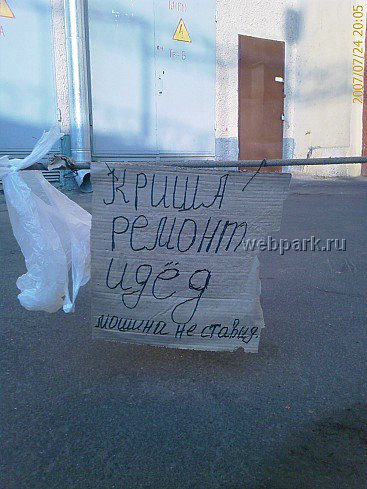 2007/07/24 20:05
КРИША
РЕМОНТ
идёд
машина не ставид.
webpark.ru